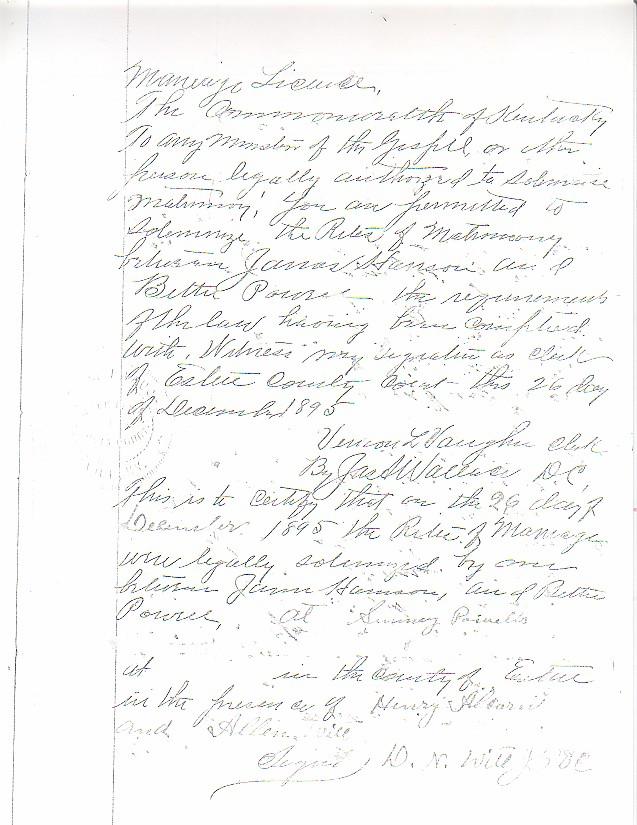 Marriage Licence,
The Commonwealth of Kentucky
To any Minister of the Gospel, or other
person legally authorized to solemnise
Matrimony, You are permitted to
Solemnize, the Rites of Matrimony
between James Hanson and
Bettie Powell the requirements
of the law having been complied
with. Witness my signature as clerk
of Estill County Court this 26 day
of December 1895
Vernon L Vaughn Clerk
By Jas A Wallace D.C.
This is to certify that on the 26 day of
December 1895 the Rites of Marriage
were legally solemnized by me
between James Hanson, and Bettie
Powell, at
at in the county of Estill
in the presence of Henry
and Allen
Signed D. N.